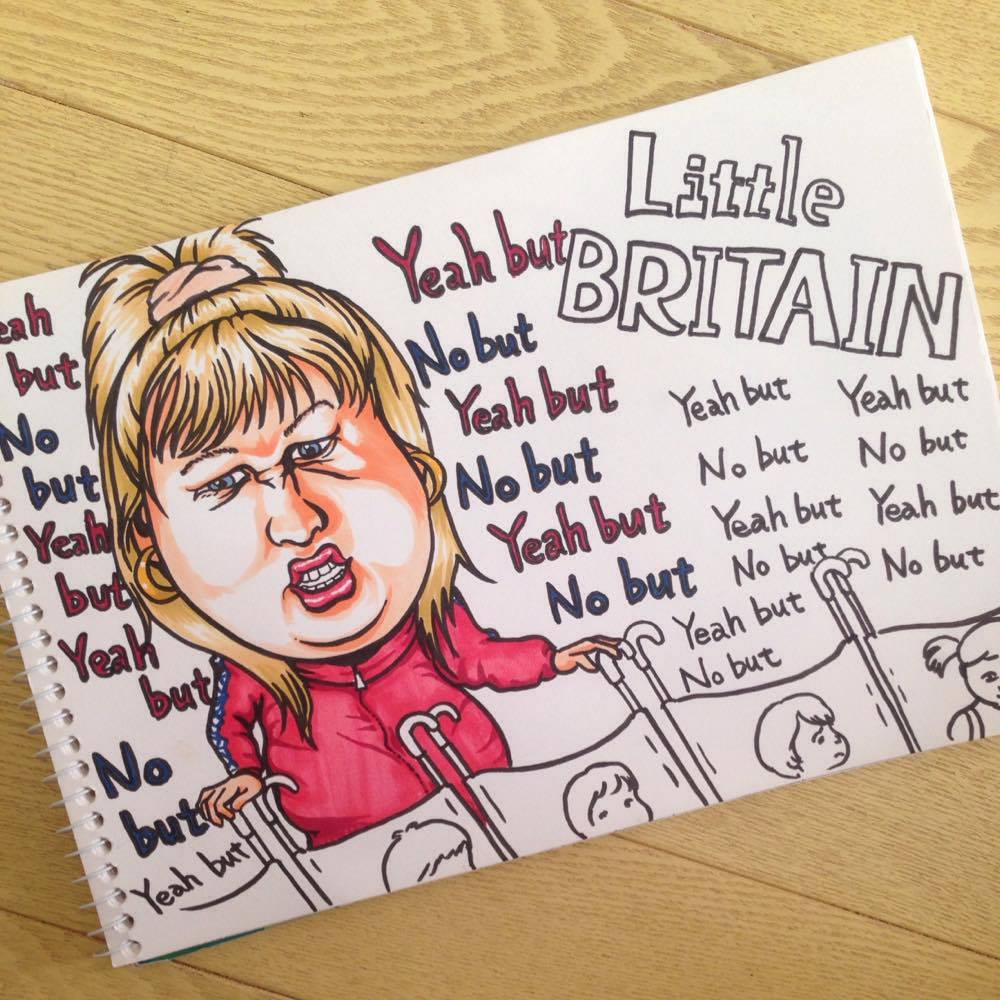 Little
BRITAIN
eah
but
No
but
Yeah
but
Yeah
but
No
but
Yeah but
Yeah but
No but
Yeah but
No but
Yeah but
No but
Yeah but
No but
Yeah but
No but
Yeah but
No but
Yeah but
No but
Yeah but
No but